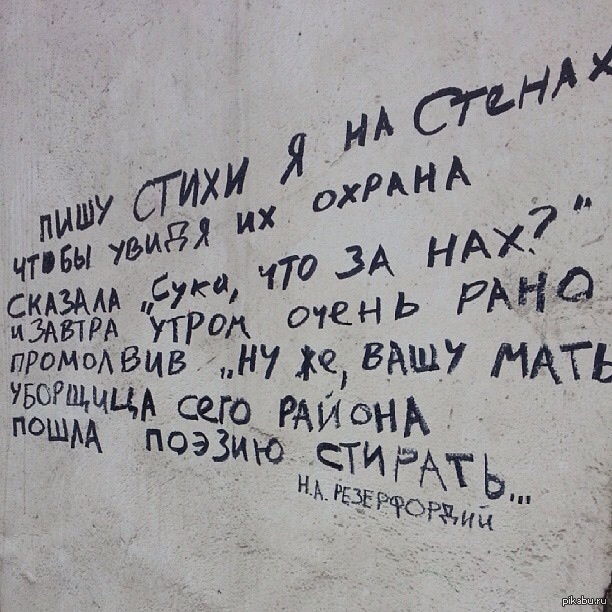 ПИШУ СТИХИ Я НА СТЕНАХ
ЧТОБЫ УВИДЯ ИХ ОХРАНА
СКАЗАЛА „Сука, ЧТО ЗА НАХ?"
И ЗАВТРА УТРОМ ОЧЕНЬ РАНО
ПРОМОЛВИВ „НУ же, ВАШУ МАТЬ
УБОРЩИЦА СЕГО РАЙОНА
ПОШЛА ПОЭЗИЮ СТИРАТЬ...
Н.А. РЕЗЕРФОРДИЙ
pikabu.ru